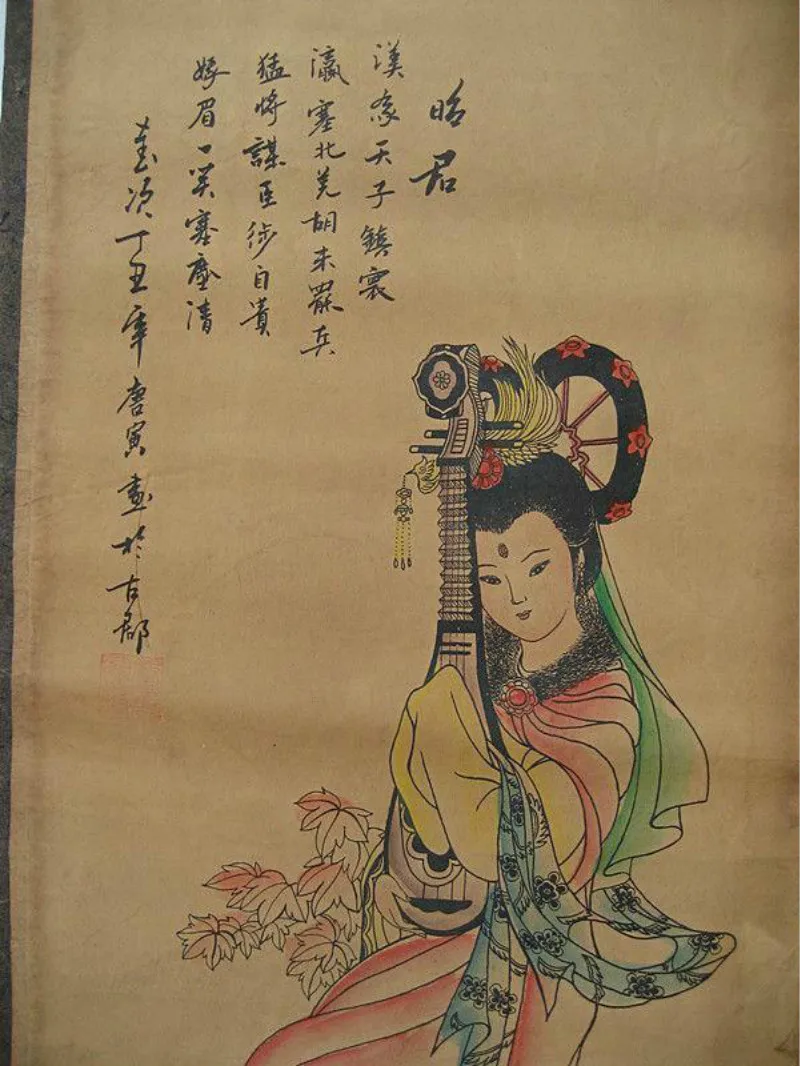 昭君
漢家天子鎮寰
瀛塞北羌胡未罷兵
猛將謀臣徒自貴
娥眉一笑塞塵清
歲次丁丑年唐寅畫於古郡